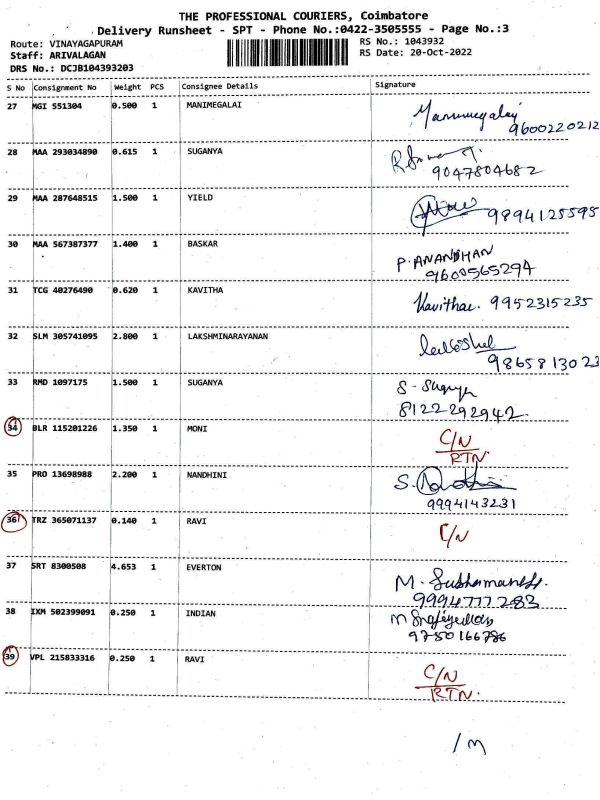 THE PROFESSIONAL COURIERS, Coimbatore
Delivery Runsheet - SPT - Phone No.:0422-3505555 - Page No.:3
Route: VINAYAGAPURAM RS No.: 1043932
Staff: ARIVALAGAN RS Date: 20-Oct-2022
DRS No.: DCJB104393203
S No Consignment No Weight PCS Consignee Details Signature
27 MGI 551304 0.500 1 MANIMEGALAI Manimegalai
9600220212
28 MAA 293034890 0.615 1 SUGANYA
9047804682
29 MAA 287648515 1.500 1 YIELD 9894125595
30 MAA 567387377 1.400 1 BASKAR P. ANANDHAN
9600565294
31 TCG 40276490 0.620 1 KAVITHA Kavitha. 9952315235
32 SLM 305741095 2.800 1 LAKSHMINARAYANAN
9865813023
33 RMD 1097175 1.500 1 SUGANYA S-
8122292942.
34 BLR 115201226 1.350 1 MONI C/N
RTN
35 PRO 13698988 2.200 1 NANDHINI S.
9994143231
36 TRZ 365071137 0.140 1 RAVI C/N
37 SRT 8300508 4.653 1 EVERTON M.
9994777283
38 IXM 502399091 0.250 1 INDIAN M
9750166786
39 VPL 215833316 0.250 1 RAVI C/N
RTN.